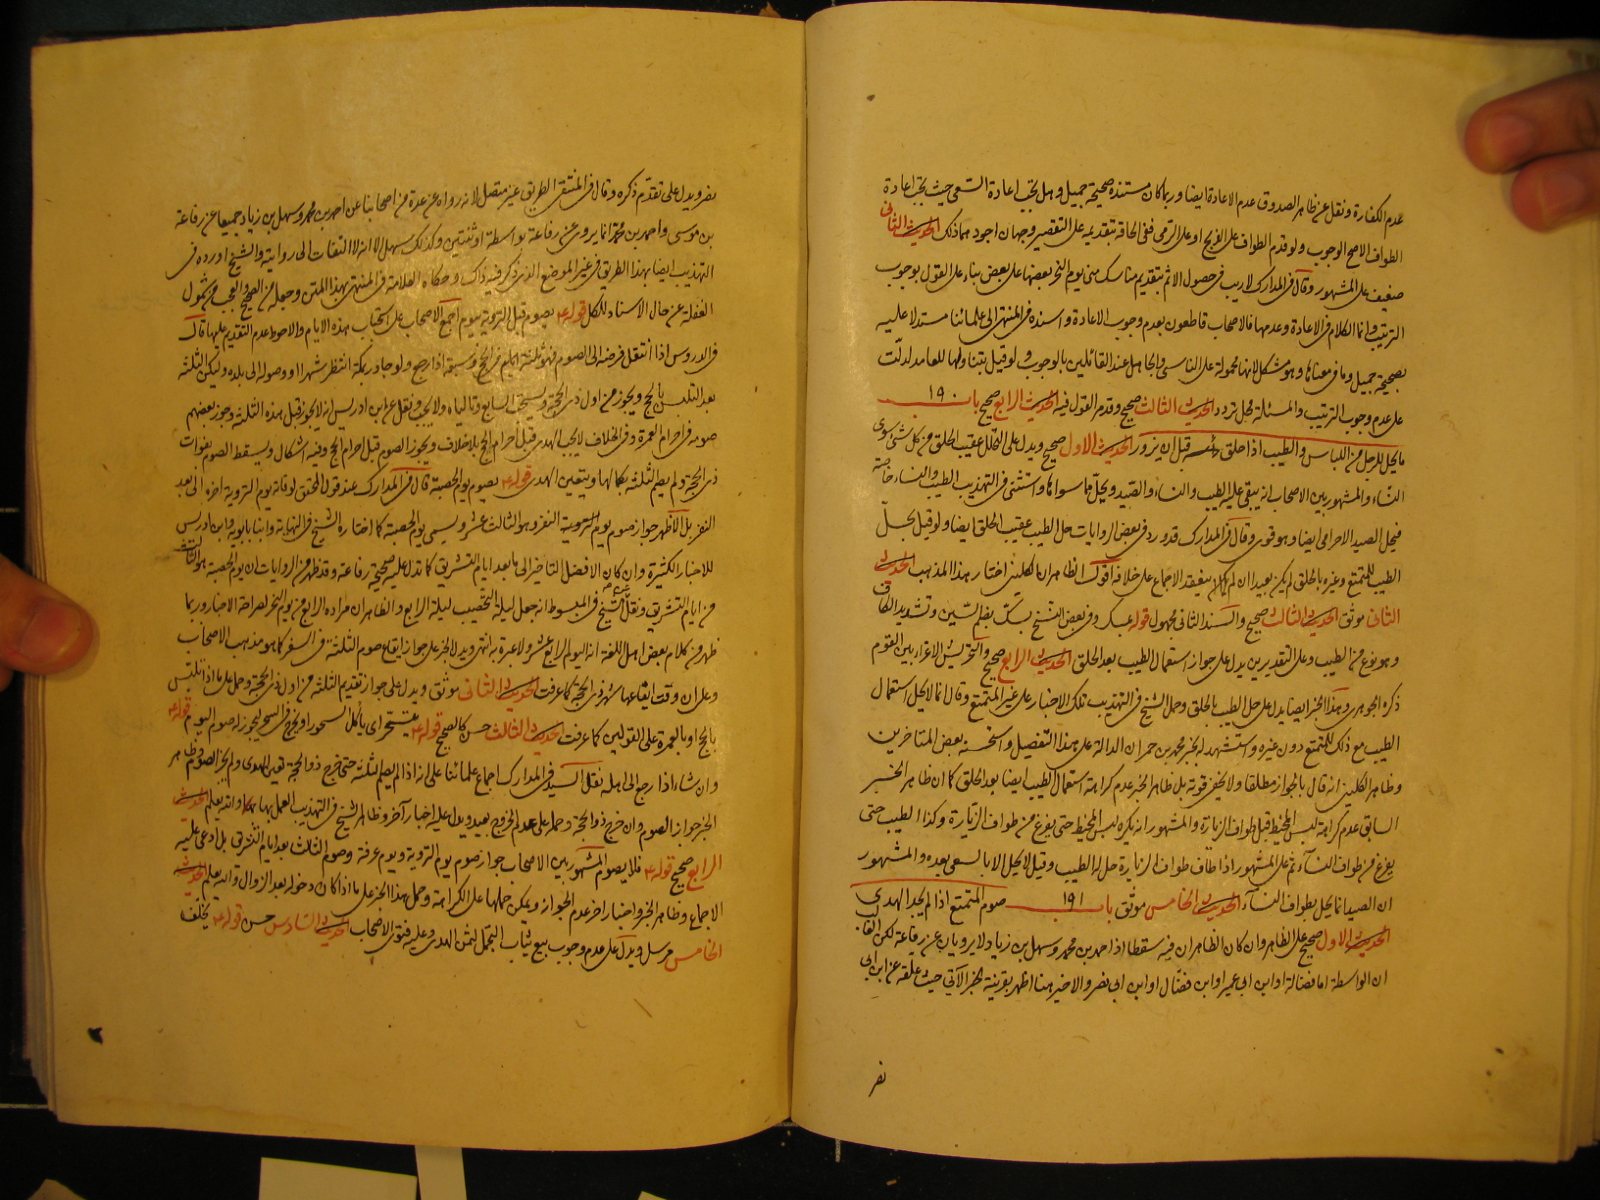 عدم الكفارة ونقل عن ظاهر الصدوق عدم الاعادة ايضا وربما كان مستنده صحيحة جميل وهل يجب اعادة السعى حيث يجب اعادة
الطواف الاصح الوجوب ولو قدم الطواف على الذبح او على الرمى ففى الحاقه بتقديمه على التقصير وجهان اجودهما ذلك الحديث الثانى
ضعيف على المشهور وقال فى المدارك لا ريب فى حصول الاثم بتقديم مناسك منى يوم النحر بعضها على بعض بناء على القول بوجوب
الترتيب وانما الكلام فى الاعادة وعدمها فالاصحاب قاطعون بعدم وجوب الاعادة واسنده فى المنتهى الى علمائنا مستدلا عليه
بصحيحة جميل وما فى معناها وهو مشكل لانها محمولة على الناسى والجاهل عند القائلين بالوجوب ولو قيل بتناولها للعامد لدلت
على عدم وجوب الترتيب والمسئلة محل تردد الحديث الثالث صحيح وقد مر القول فيه الحديث الرابع صحيح باب ١٩٠
ما يحل للرجل من اللباس والطيب اذا حلق راسه قبل ان يزور الحديث الاول صحيح ويدل على التحلل عقيب الحلق من كل شئ سوى
النساء والمشهور بين الاصحاب انه يبقى عليه الطيب والنساء والصيد ويحل ما سواها واستثنى فى التهذيب الطيب والنساء خاصة
فيحل الصيد الاحرامى ايضا وهو قوى وقال فى المدارك قد ورد فى بعض الروايات حل الطيب عقيب الحلق ايضا ولو قيل بحل
الطيب للمتمتع وغيره بالحلق لم يكن بعيدا ان لم ينعقد الاجماع على خلافه اقول الظاهر ان الكلينى اختار هذا المذهب الحديث
الثانى موثق الحديث الثالث صحيح والسند الثانى مجهول قوله بسك وفى بعض النسخ بسك بضم السين وتشديد الكاف
وهو نوع من الطيب وعلى التقديرين يدل على جواز استعمال الطيب بعد الحلق الحديث الرابع صحيح والتحريش الاغراء بين القوم
ذكره الجوهرى وهذا الخبر ايضا يدل على حل الطيب بالحلق وحمل الشيخ فى التهذيب تلك الاخبار على غير المتمتع وقال انما لا يحل استعمال
الطيب مع ذلك للمتمتع دون غيره واستشهد له بخبر محمد بن حمران الدالة على هذا التفصيل واستحسنه بعض المتاخرين
وظاهر الكلينى انه قال بالجواز مطلقا ولا يخفى قوته بل ظاهر الخبر عدم كراهة استعمال الطيب ايضا بعد الحلق كما ان ظاهر الخبر
السابق عدم كراهة لبس المخيط قبل طواف الزيارة والمشهور انه يكره لبس المخيط حتى يفرغ من طواف الزيارة وكذا الطيب حتى
يفرغ من طواف النساء ثم على المشهور اذا طاف طواف الزيارة حل له الطيب وقيل لا يحل الا بالسعى بعده والمشهور
ان الصيد انما يحل بطواف النساء الحديث الخامس موثق باب ١٩١ صوم المتمتع اذا لم يجد الهدى
الحديث الاول صحيح على الظاهر وان كان الظاهر ان فيه سقطا اذ احمد بن محمد وسهل بن زياد لا يرويان عن رفاعة لكن الغالب
ان الواسطة اما فضالة او ابن ابى عمير او ابن فضال او ابن ابى نصر والاخير هنا اظهر بقرينة الخبر الآتى حيث علقه عن ابن ابى
نصر
نصر ويدل على تقدم ذكره وقال فى المنتقى الطريق غير متصل لانه رواه عن عدة من اصحابنا عن احمد بن محمد وسهل بن زياد جميعا عن رفاعة
بن موسى واحمد بن محمد انما يروى عن رفاعة بواسطة او ثنتين وكذلك سهل الا انه لا التفات الى روايته والشيخ اورده فى
التهذيب ايضا بهذا الطريق فى غير الموضع الذى ذكر فيه ذاك وحكاه العلامة فى المنتهى بهذا المتن وجعله من الصحيح والعجب من شمول
الغفلة عن حال الاسناد للكل قوله ع يصوم قبل التروية بيوم اجمع الاصحاب على استحباب هذه الايام والاحوط عدم التقديم عليها قال
فى الدروس اذا انتقل فرضه الى الصوم فهو ثلثة ايام فى الحج وسبعة اذا رجع ولو جاور بمكة انتظر شهرا او وصوله الى بلده وليكن الثلثة
بعد التلبس بالحج ويجوز من اول ذى الحجة ويستحب السابع وتالياه ولا يجب ونقل عن ابن ادريس انه لا يجوز قبل هذه الثلثة وجوز بعضهم
صومه فى احرام العمرة وفى الخلاف لا يجب الهدى قبل احرام الحج بلا خلاف ويجوز الصوم قبل احرام الحج وفيه اشكال ويسقط الصوم بفوات
ذى الحجة ولم يصم الثلثة بكمالها ويتعين الهدى قوله ع يصوم يوم الحصبة قال فى المدارك عند قول المحقق لو فاته يوم التروية اخره الى بعد
النفر بل الاظهر جواز صوم يوم النفر وهو الثالث عشر ويسمى يوم الحصبة كما اختاره الشيخ فى النهاية وابنا بابويه وابن ادريس
للاخبار الكثيرة وان كان الافضل التاخير الى ما بعد ايام التشريق كما تدل عليه صحيحة رفاعة وقد ظهر من الروايات ان يوم الحصبة هو الثالث
من ايام التشريق ونقل عن الشيخ فى المبسوط انه جعل ليلة التحصيب ليلة الرابع والظاهر ان مراده الرابع من يوم النحر لصراحة الاخبار وربما
ظهر من كلام بعض اهل اللغة انه اليوم الرابع عشر ولا عبرة به انتهى ويدل الخبر على جواز ايقاع صوم الثلثة فى السفر كما هو مذهب الاصحاب
وعلى ان وقت ايقاعها شهر ذى الحجة كما عرفت الحديث الثانى موثق ويدل على جواز تقديم الثلثة من اول ذى الحجة وحمل على ما اذا تلبس
بالحج او بالعمرة على القولين كما عرفت الحديث الثالث حسن كالصحيح قوله ع يتسحر اى يأكل السحور او يخرج فى السحر ليجوز له صوم اليوم قوله ع
وان شاء اذا رجع الى اهله نقل السيد فى المدارك اجماع علمائنا على انه اذا لم يصم الثلثة حتى خرج ذو الحجة تعين الهدى ولم يجز الصوم وظاهر
الخبر جواز الصوم وان خرج ذو الحجة وحمله على عدم الخروج بعيد ويدل عليه اخبار آخر وظاهر الشيخ فى التهذيب العمل بها والله يعلم الحديث
الرابع صحيح قوله ع فلا يصوم المشهور بين الاصحاب جواز صوم يوم التروية ويوم عرفة وصوم الثالث بعد ايام التشريق بل ادعى عليه
الاجماع وظاهر الخبر واخبار اخر عدم الجواز ويمكن حملها على الكراهة وحمل هذا الخبر على ما اذا كان دخوله بعد الزوال والله يعلم الحديث
الخامس مرسل ويدل على عدم وجوب بيع ثياب التجمل لثمن الهدى وعليه فتوى الاصحاب الحديث السادس حسن قوله ع يخلف